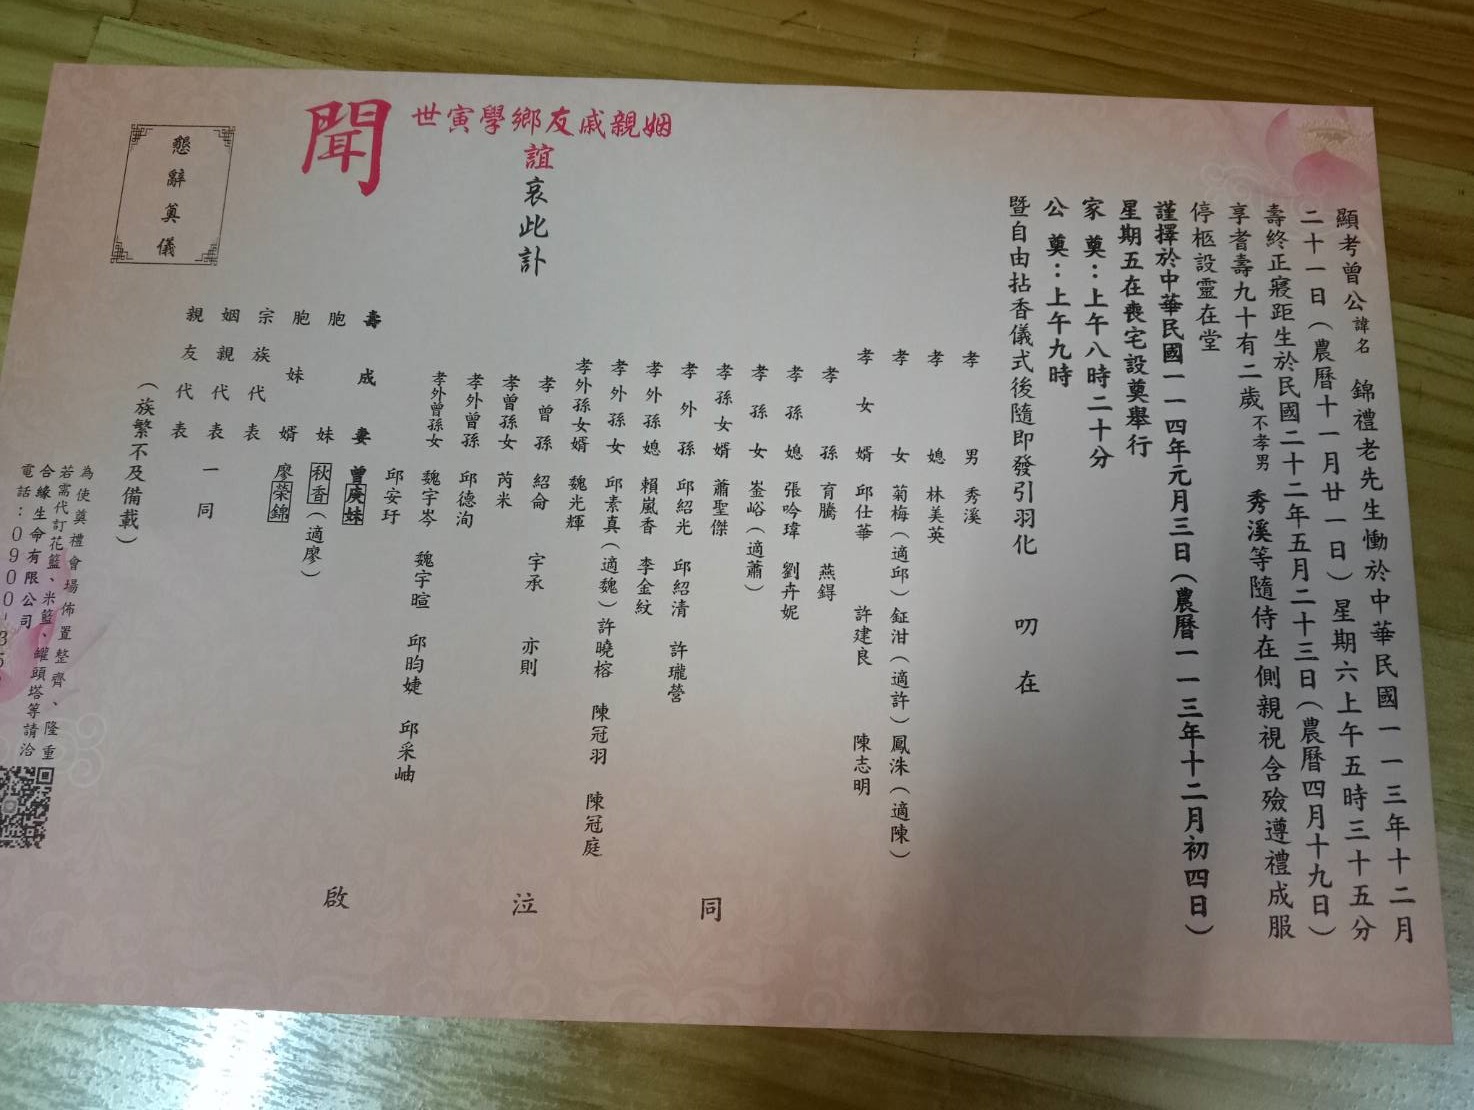 顯考曾公諱名 錦禮老先生慟於中華民國一一三年十二月
二十一日（農曆十一月廿一日）星期六上午五時三十五分
壽終正寢距生於民國二十二年五月二十三日（農曆四月十九日）
享耆壽九十有二歲不孝男 秀溪等隨侍在側親視含殮遵禮成服
停柩設靈在堂
謹擇於中華民國一一四年元月三日（農曆一一三年十二月初四日）
星期五在喪宅設奠舉行
家奠：上午八時二十分
公奠：上午九時
暨自由拈香儀式後隨即發引羽化 叨在
孝男 秀溪
孝媳 林美英
孝女 菊梅（適邱）鉦泔（適許）鳳洙（適陳）
孝女婿 邱仕華 許建良 陳志明
孝孫 育騰 燕鍀
孝孫媳 張吟瑋 劉卉妮
孝孫女 崟峪（適蕭）
孝孫女婿 蕭聖傑
孝外孫 邱紹光 邱紹清 許瓏瀯
孝外孫媳 賴嵐香 李金紋
孝外孫女 邱素真（適魏）許曉榕 陳冠羽 陳冠庭
孝外孫女婿 魏光輝
孝曾孫 紹侖 宇承 亦則
孝曾孫女 芮米
孝外曾孫 邱德洵
孝外曾孫女 魏宇岑 魏宇暄 邱昀婕 邱采岫
邱安玗
壽成妻 曾庚妹
胞妹 秋香（適廖）
胞妹婿 廖榮錦
宗族代表
姻親代表一同
親友代表
（族繁不及備載）
同泣啟
姻親戚友鄉學寅世
誼哀此訃
聞
懇辭奠儀
為使奠禮會場佈置整齊、隆重
若需代訂花籃、米籃、罐頭塔等請洽
合緣生命有限公司
電話：0900-35